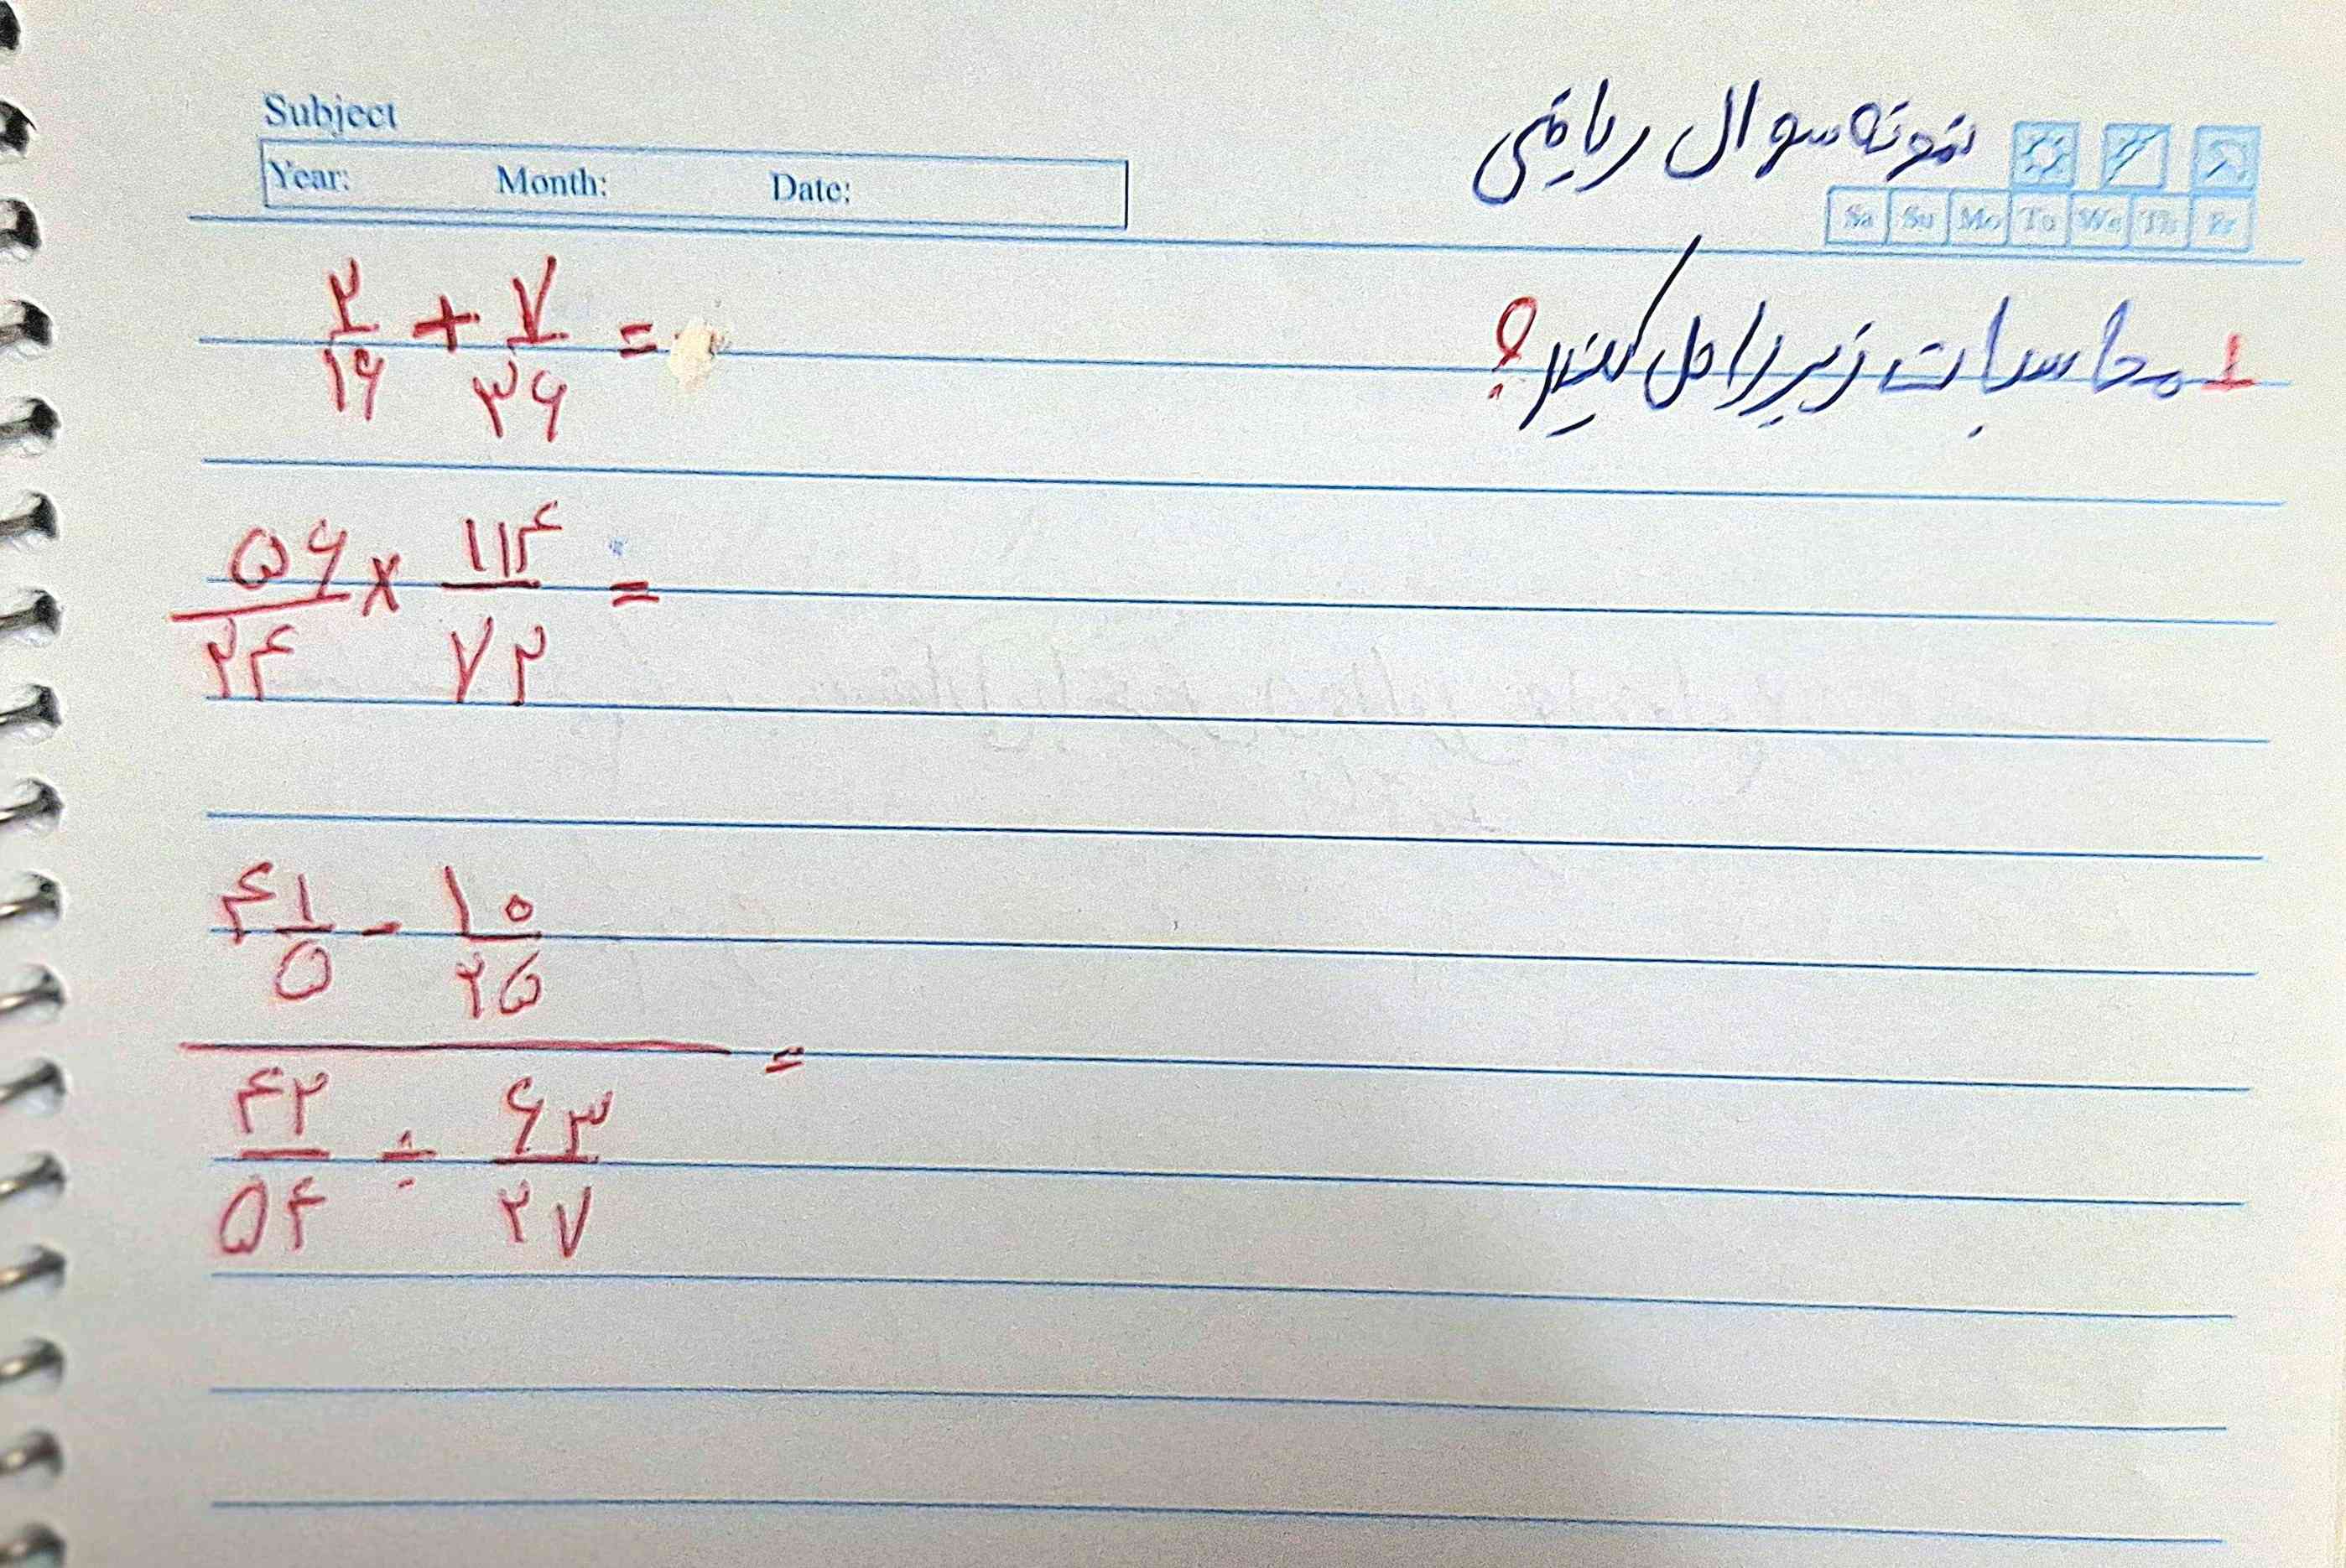 Subject
Year: Month: Date:
نمونه سوال ریاضی
Sa Su Mo Tu We Th Fr
1 محاسبات زیر را حل کنید؟
۲/۱۶ + ۷/۳۶ =
۵۶/۲۴ × ۱۱۴/۷۲ =
۴ ۱/۵ - ۱۰/۲۵
=
۴۲/۵۴ ÷ ۶۳/۲۷